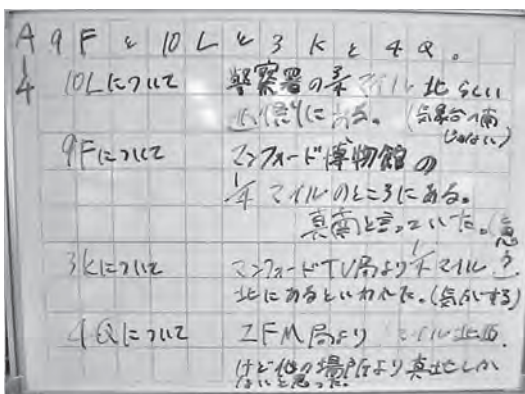 A 9Fと10Lと3Kと4Q。
1/4 10Lについて 警察署の3/4マイル北らしい
に ある。(気象台の南
じゃない)
9Fについて マンフォード博物館の
1/4マイルのところにある。
真南と言っていた。(
3Kについて マンフォードTV局より1/4マイル
北にあるといわれた。(気がする)
4Qについて ZFM局より マイル北西
けど他の場所より真北しか
ないと思った。